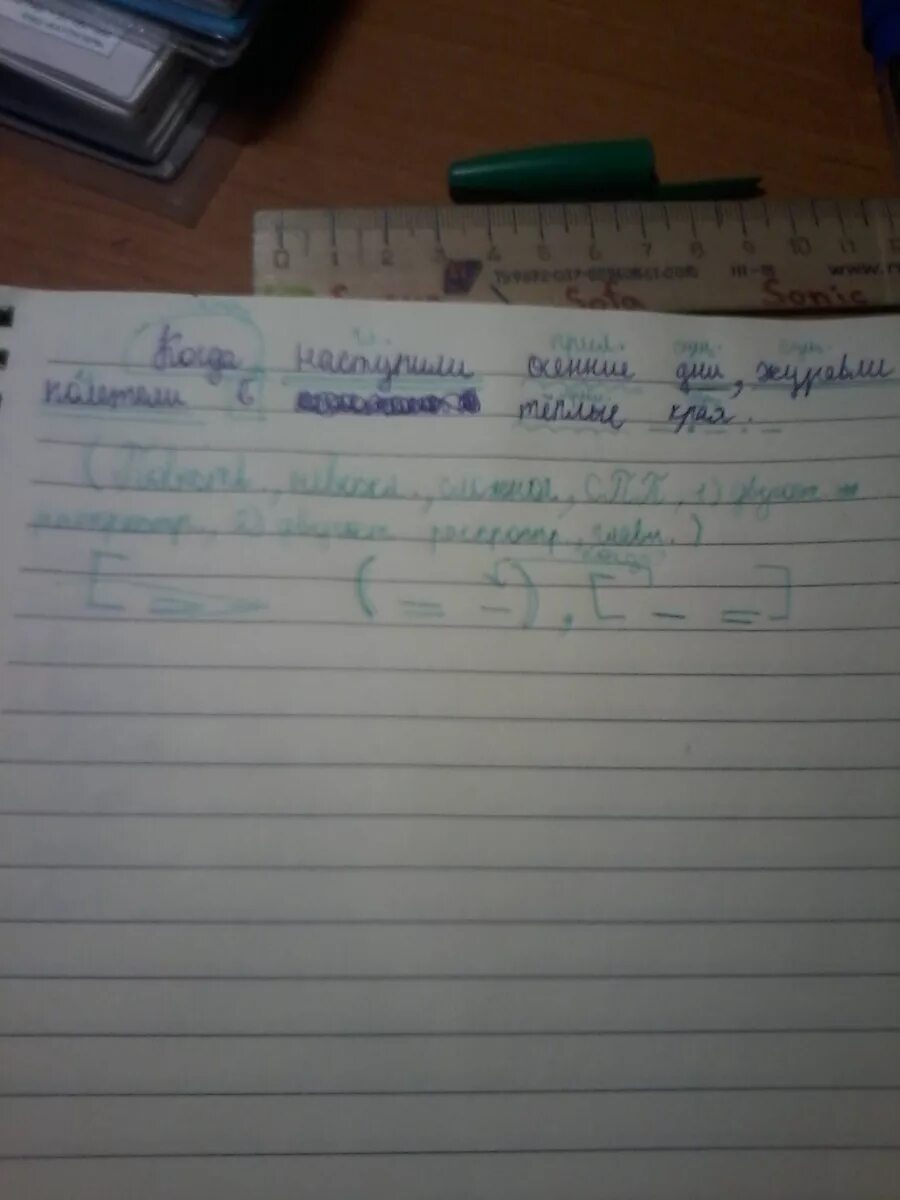 0 1 2 3 4 5 6 7 8 9 10 11 12
Sofa Sonic
гл. прил. сущ. сущ.
Когда наступили осенние дни, журавли
полетели в тёплые края.
(Повеств., невоскл., сложное, СПП, 1) двусост.
распростр., 2) двусост., распростр., главн.)
когда
[ = (= –), [– =]